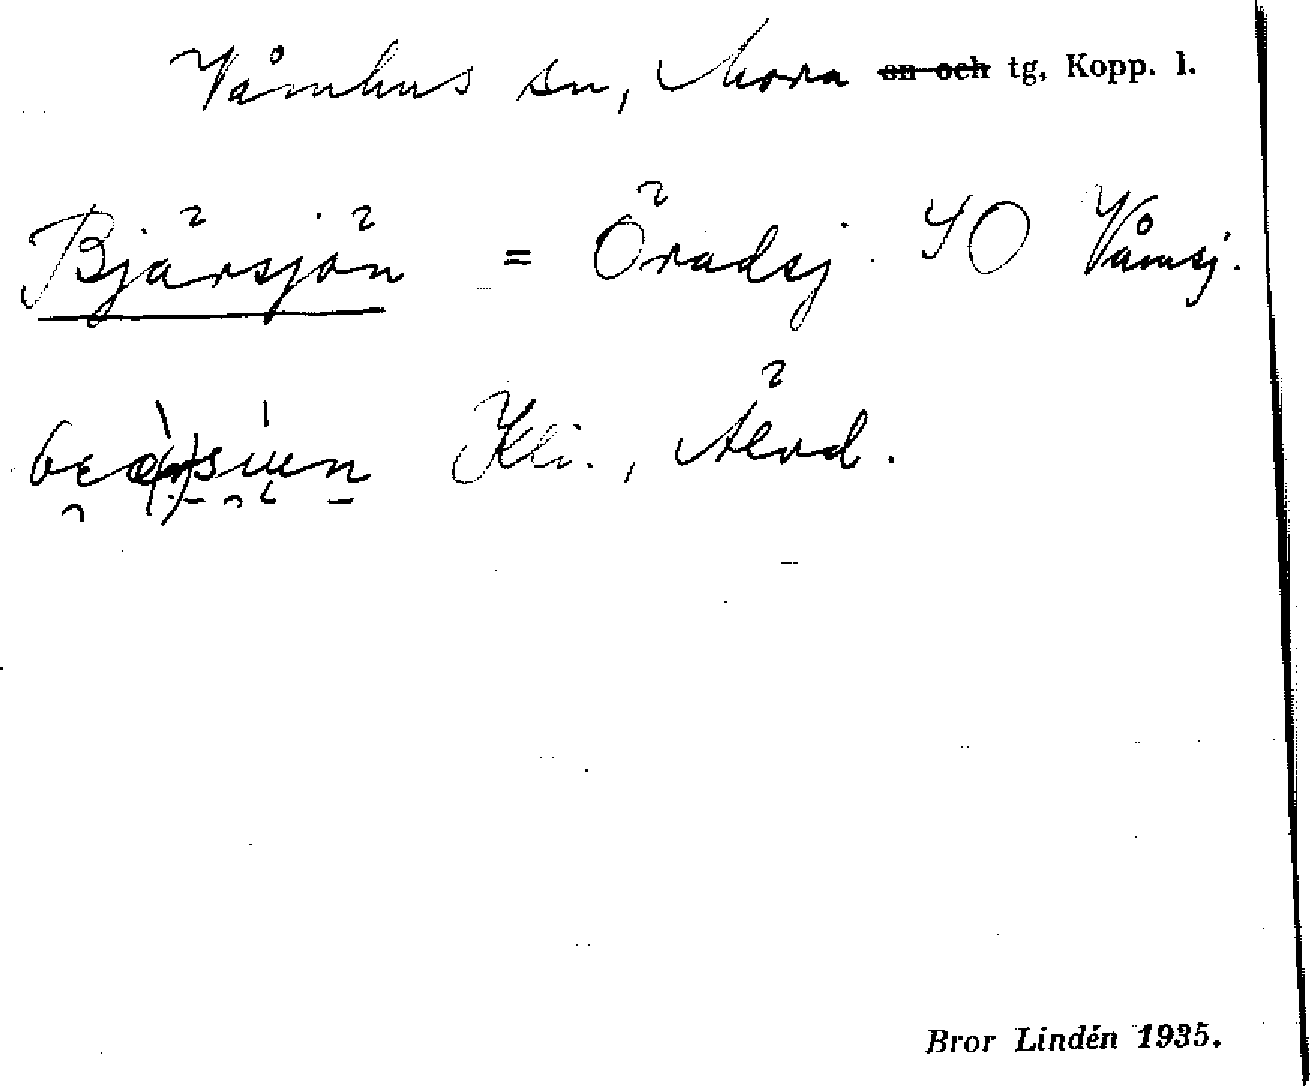 Våmhus sn, Mora sn och tg, Kopp. l.
Bjärsjön = Öradsj. SO Våmsj.
Kli., Älvd.
Bror Lindén 1935.